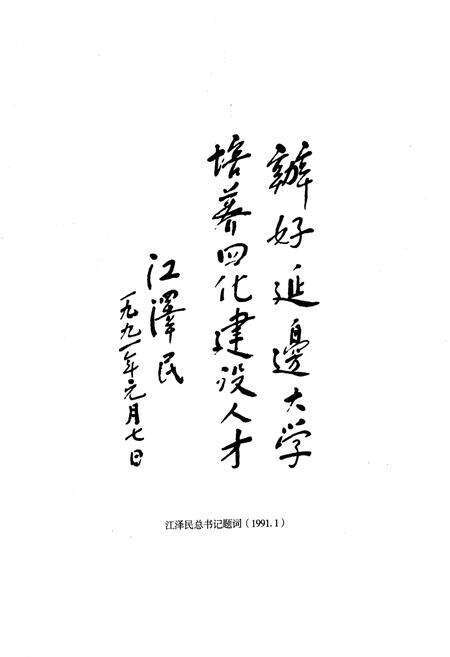 辦好延邊大学
培养四化建设人才
江澤民
一九九一年元月七日
江泽民总书记题词(1991.1)